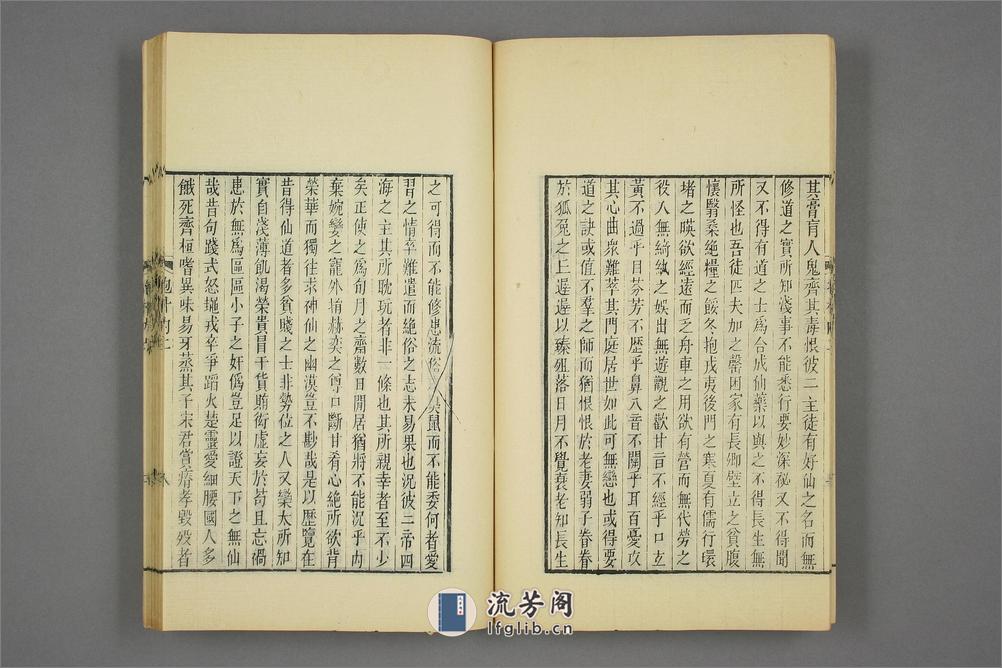 其膏肓人鬼齊其毒恨彼二主徒有好仙之名而無
修道之實所知淺事不能悉行要妙深秘又不得聞
又不得有道之士爲合成仙藥以與之不得長生無
所怪也吾徒匹夫加之罄困家有長卿壁立之貧腹
懷翳桑絶糧之餒冬抱戎夷後門之寒夏有儒行環
堵之暎欲經遠而乏舟車之用欲有營而無代勞之
役入無綺紈之娛出無遊觀之歡甘旨不經乎口玄
黃不過乎目芬芳不歷乎鼻八音不關乎耳百憂攻
其心曲衆難萃其門庭居世如此可無戀也或得要
道之訣或值不羣之師而猶恨恨於老妻弱子眷眷
於狐兔之丘遲遲以臻殂落日月不覺衰老知長生
之可得而不能修患流俗臭鼠而不能委何者愛
習之情卒難遣而絶俗之志未易果也況彼二帝四
海之主其所耽玩者非一條也其所親幸者至不少
矣正使之爲旬月之齋數日閒居猶將不能況乎内
棄婉孌之寵外捐赫奕之尊口斷甘肴心絶所欲背
榮華而獨往求神仙之幽漠豈不尠哉是以歷覽在
昔得仙道者多貧賤之士非勢位之人又欒太所知
實自淺薄飢渴榮貴冒干貨賄衒虛妄於苟且忘禍
患於無爲區區小子之奸僞豈足以證天下之無仙
哉昔句踐式怒䵷戎卒爭蹈火楚靈愛細腰國人多
餓死齊桓嗜異味易牙蒸其子宋君賞瘠孝毀歿者
流芳阁
lfglib.cn